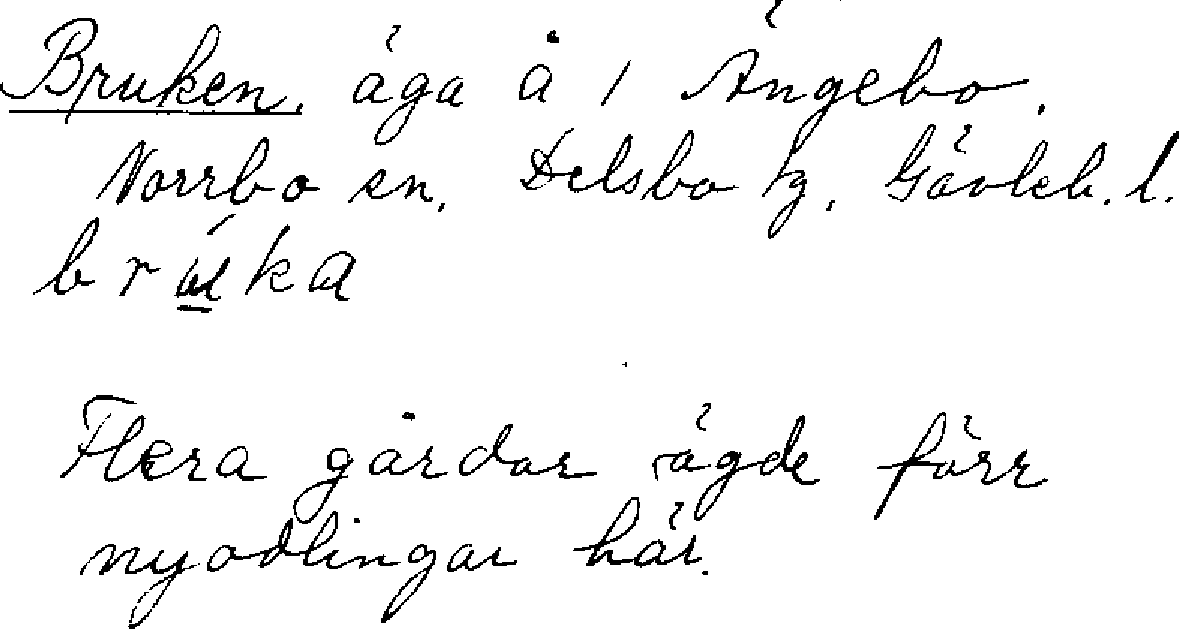 Bruken, äga å 1 Ängebo,
Norrbo sn, Delsbo tg, Gävleb. l.
bru̲ka
Flera gårdar ägde förr
nyodlingar här.